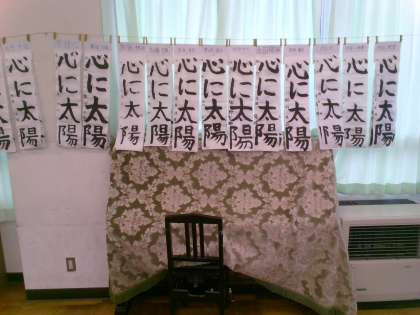 心に太陽
心に太陽
心に太陽
心に太陽
心に太陽
心に太陽
心に太陽
心に太陽
心に太陽
心に太陽
心に太陽
心に太陽
心に太陽